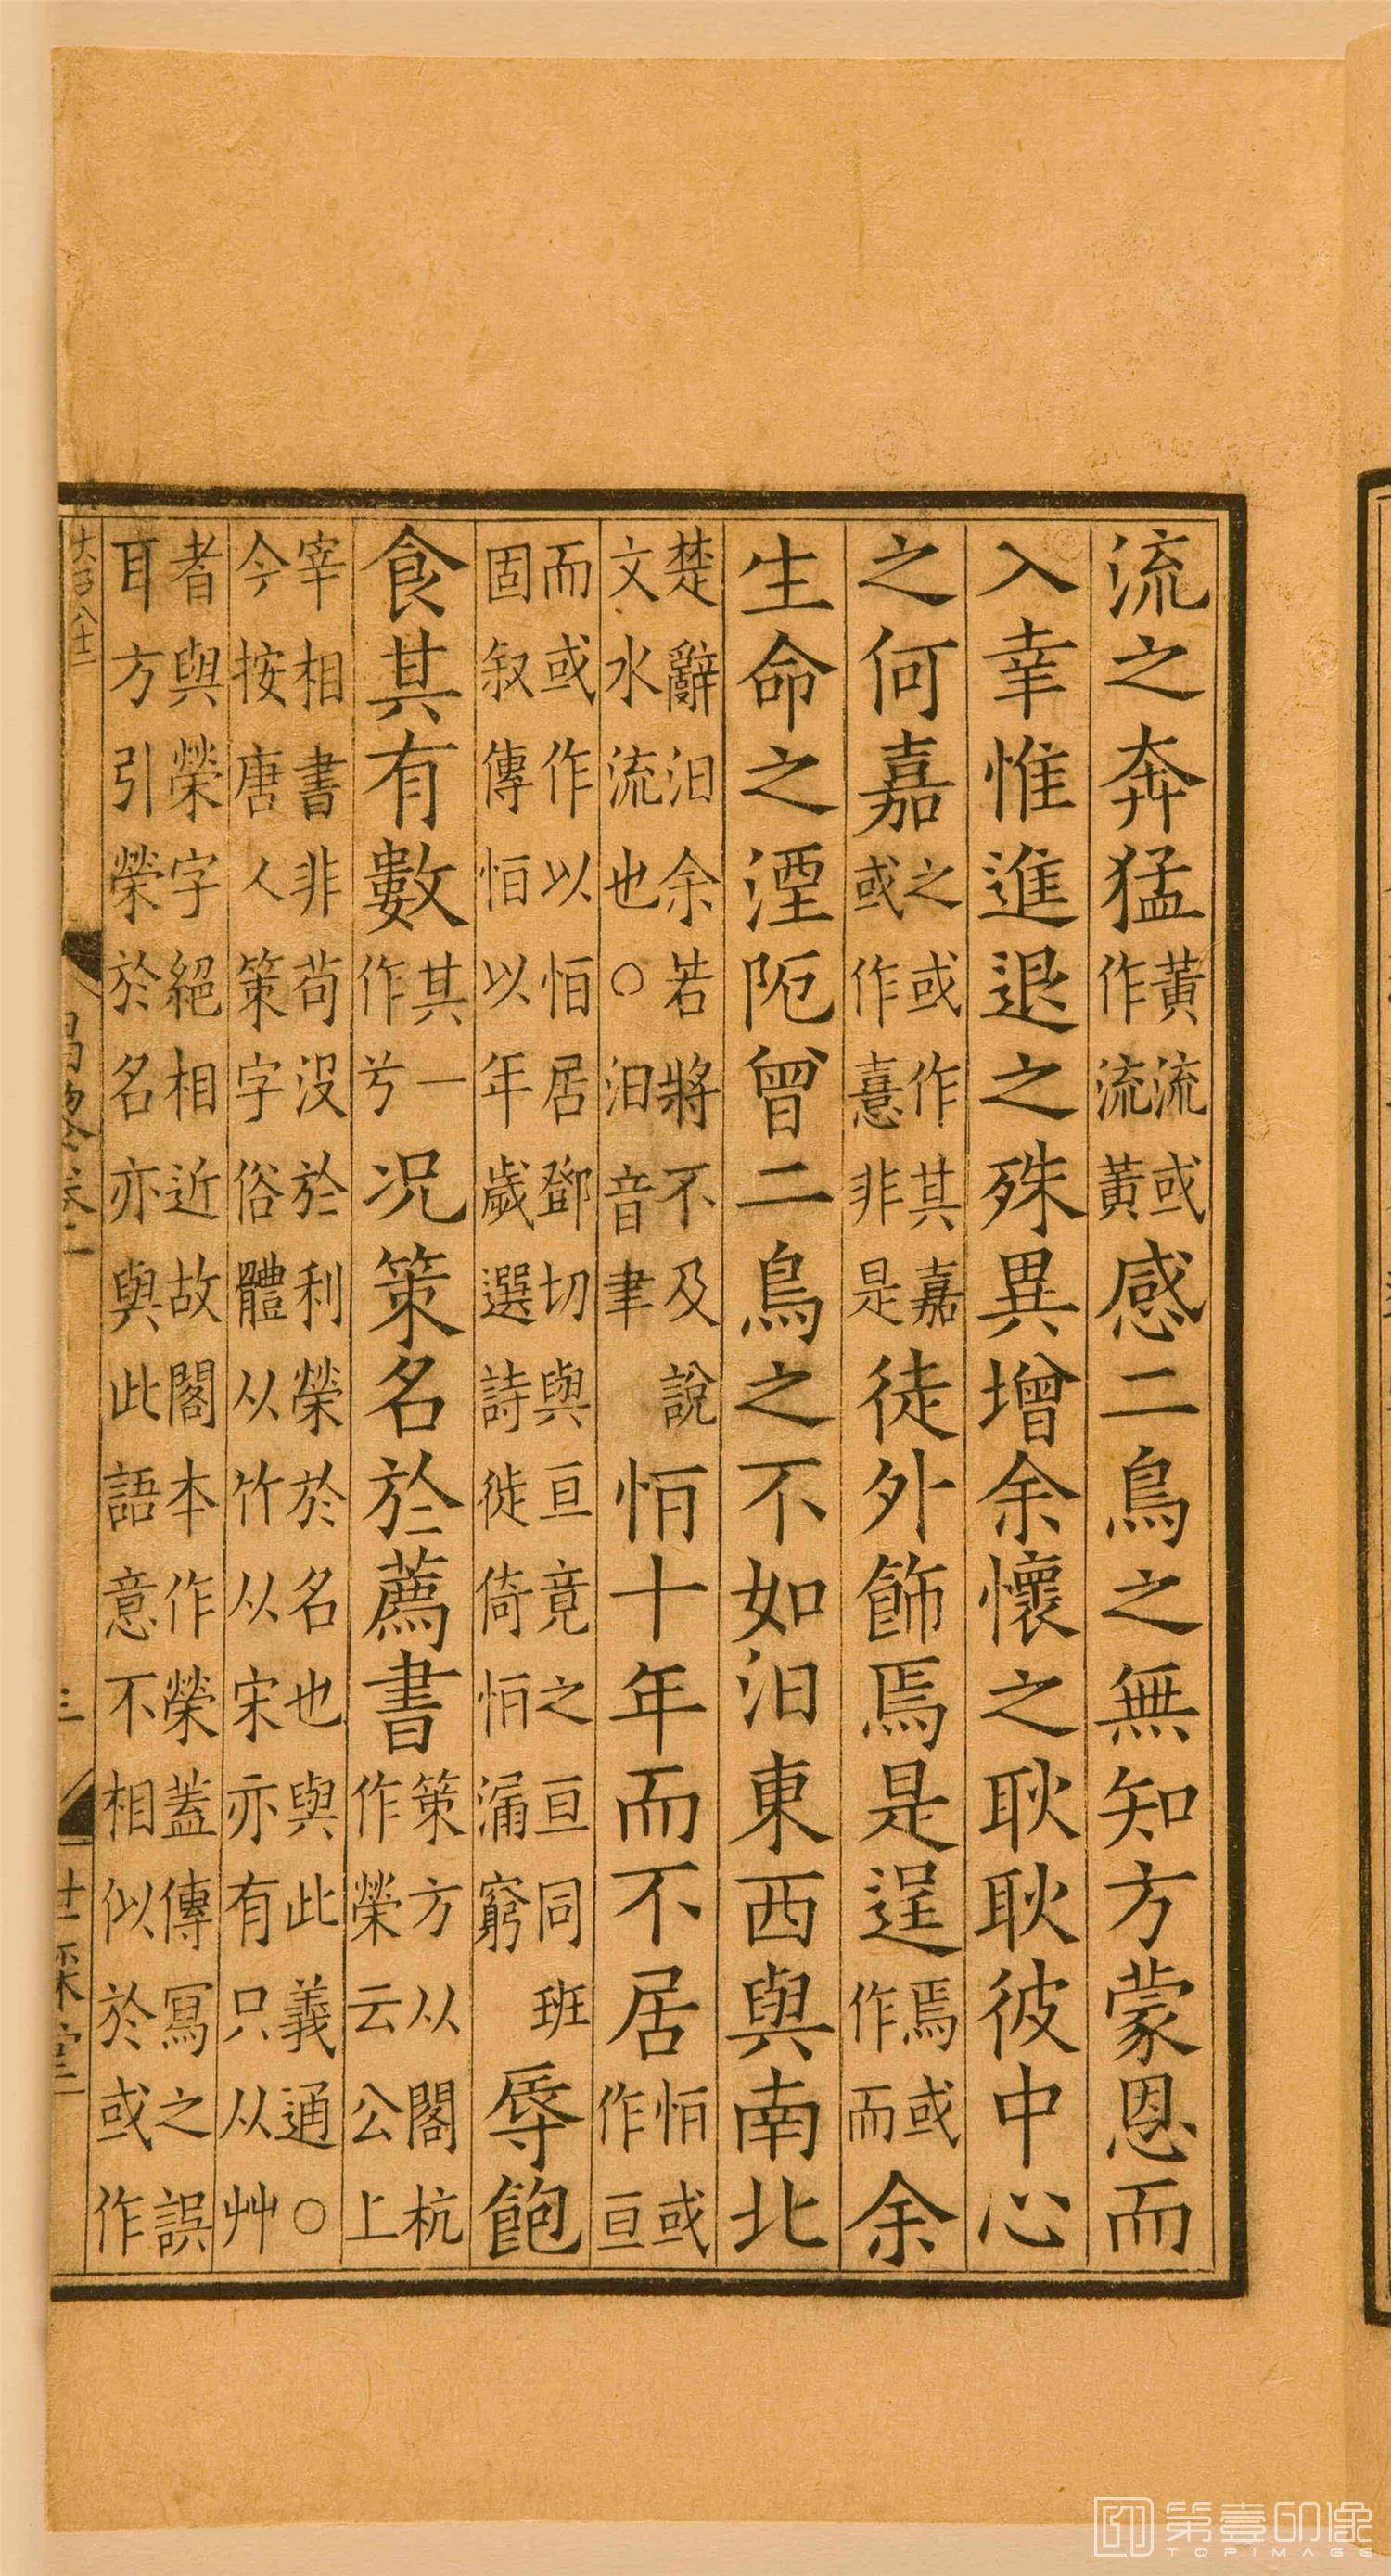 流之奔猛黃流或作流黃感二鳥之無知方蒙恩而
入幸惟進退之殊異增余懷之耿耿彼中心
之何嘉之或作其嘉或作憙非是徒外飾焉是逞焉或作而余
生命之湮阨曾二鳥之不如汩東西與南北
楚辭汩余若將不及說文水流也○汩音聿恒十年而不居恒或作亘
而或作以恒居鄧切與亘竟之亘同班固叙傳恒以年歲選詩徙倚恒漏窮辱飽
食其有數其一作兮况策名於薦書策方从閣杭作榮云公上
宰相書非苟没於利榮於名也與此義通○今按唐人策字俗體从竹从宋亦有只从艸
者與榮字絕相近故閣本作榮蓋傳冩之誤耳方引榮於名亦與此語意不相似於或作
三
第壹印像
TOPIMAGE